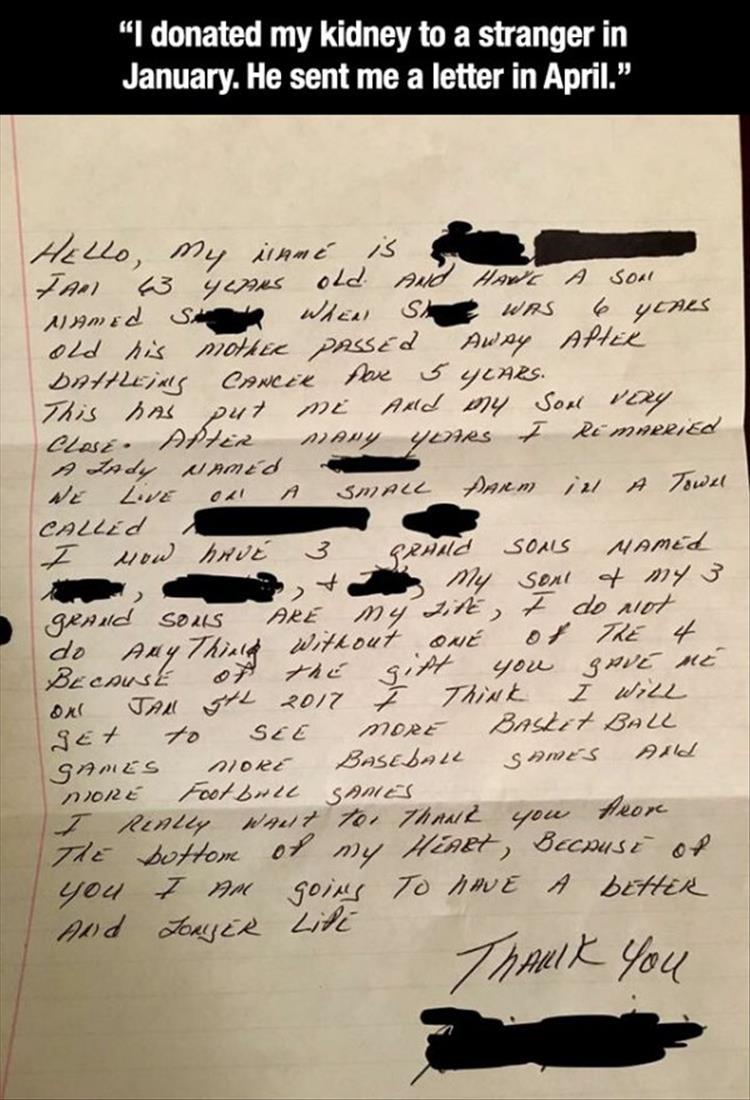 “I donated my kidney to a stranger in
January. He sent me a letter in April.”
HELLO, My NAME iS
I AM 63 YEARS old AND HAVE A SON
NAMEd S WHEN S WAS 6 YEARS
old his MOTHER PASSEd AWAY AFTER
bATTLEiNg CANCER for 5 YEARS.
This hAS put ME ANd My SoN VERy
CLOSE. AFTER MANy YEARS I REMARRIEd
A LAdy NAMEd
WE LiVE ON A SMALL FARM iN A TOWN
CALLEd
I NOW hAVE 3 gRANd SONS NAMEd
, , + , My SON + My 3
gRANd SONS ARE My LiFE, I do NOT
do ANyThiNg WiTHOUT ONE of THE 4
BECAUSE of thE gift you gAVE ME
ON JAN 5th 2017 I THiNK I WiLL
gET to SEE MORE BASkEt BALL
gAMES MORE BASEbALL gAMES ANd
MORE FootbALL gAMES
I REALLy WANT To, THANK you from
THE bottom of my HEART, BECAUSE of
you I AM goiNg TO hAVE A bETTER
ANd LONgER LiFE
THANK You